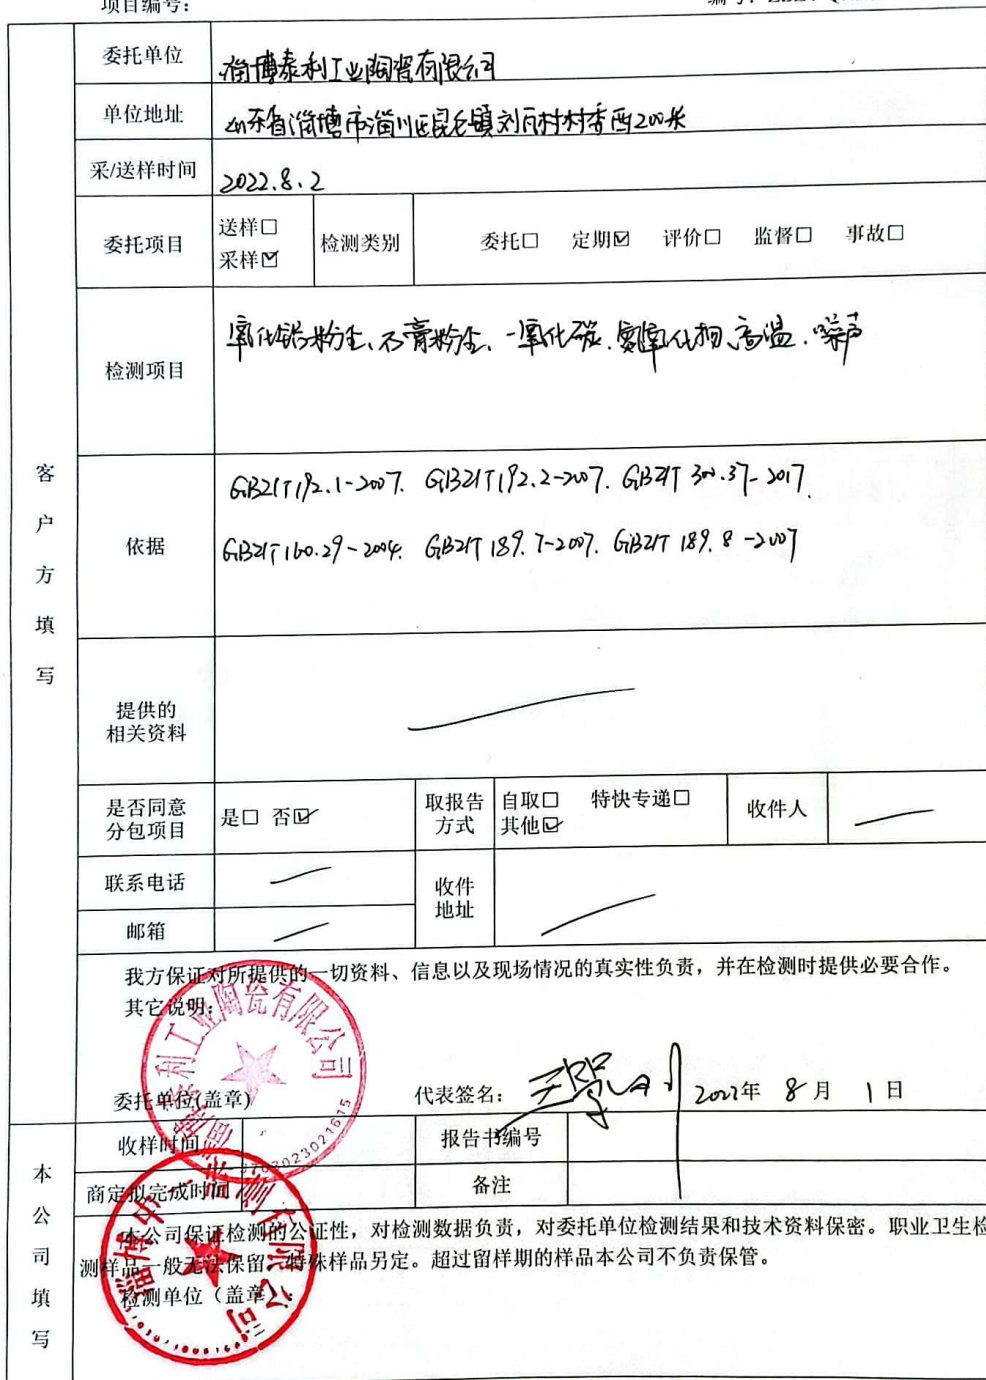 项目编号：
委托单位
淄博泰利工业陶瓷有限公司
单位地址
山东省淄博市淄川区昆仑镇刘瓦村村委西200米
采/送样时间
2022.8.2
委托项目
送样□
采样☑
检测类别
委托□ 定期☑ 评价□ 监督□ 事故□
检测项目
氧化铝粉尘、石膏粉尘、一氧化碳、氮氧化物、高温、噪声
客户方填写
依据
GBZ/T192.1-2007. GBZ/T192.2-2007. GBZ/T 300.37-2017.
GBZ/T160.29-2004. GBZ/T 189.7-2007. GBZ/T 189.8-2007
提供的
相关资料
是否同意
分包项目
是□ 否☑
取报告
方式
自取□ 特快专递□
其他☑
收件人
联系电话
收件
地址
邮箱
我方保证对所提供的一切资料、信息以及现场情况的真实性负责，并在检测时提供必要合作。
其它说明：
淄博泰利工业陶瓷有限公司
3702023021615
委托单位(盖章)
代表签名：
2022年 8月 1日
收样时间
报告书编号
商定拟完成时间
备注
本公司填写
本公司保证检测的公证性，对检测数据负责，对委托单位检测结果和技术资料保密。职业卫生检
测样品一般无法保留，特殊样品另定。超过留样期的样品本公司不负责保管。
检测单位（盖章）：